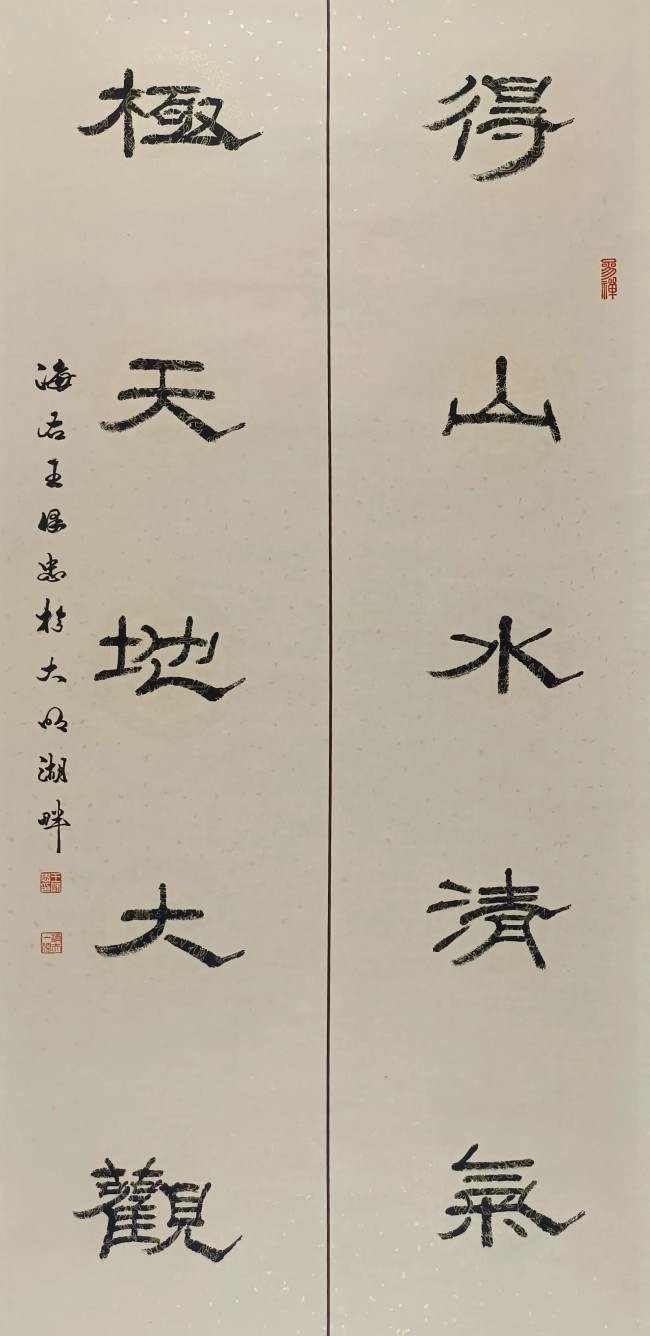 得山水清氣
極天地大觀
海右王保忠於大明湖畔